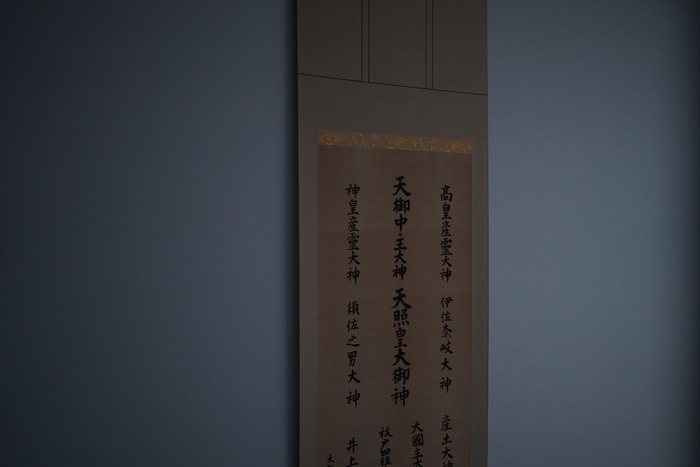 高皇産霊大神 伊佐奈岐大神 産土大神
天御中主大神 天照皇大御神
大國主大
祓戸四柱
神皇産霊大神 須佐之男大神 井上